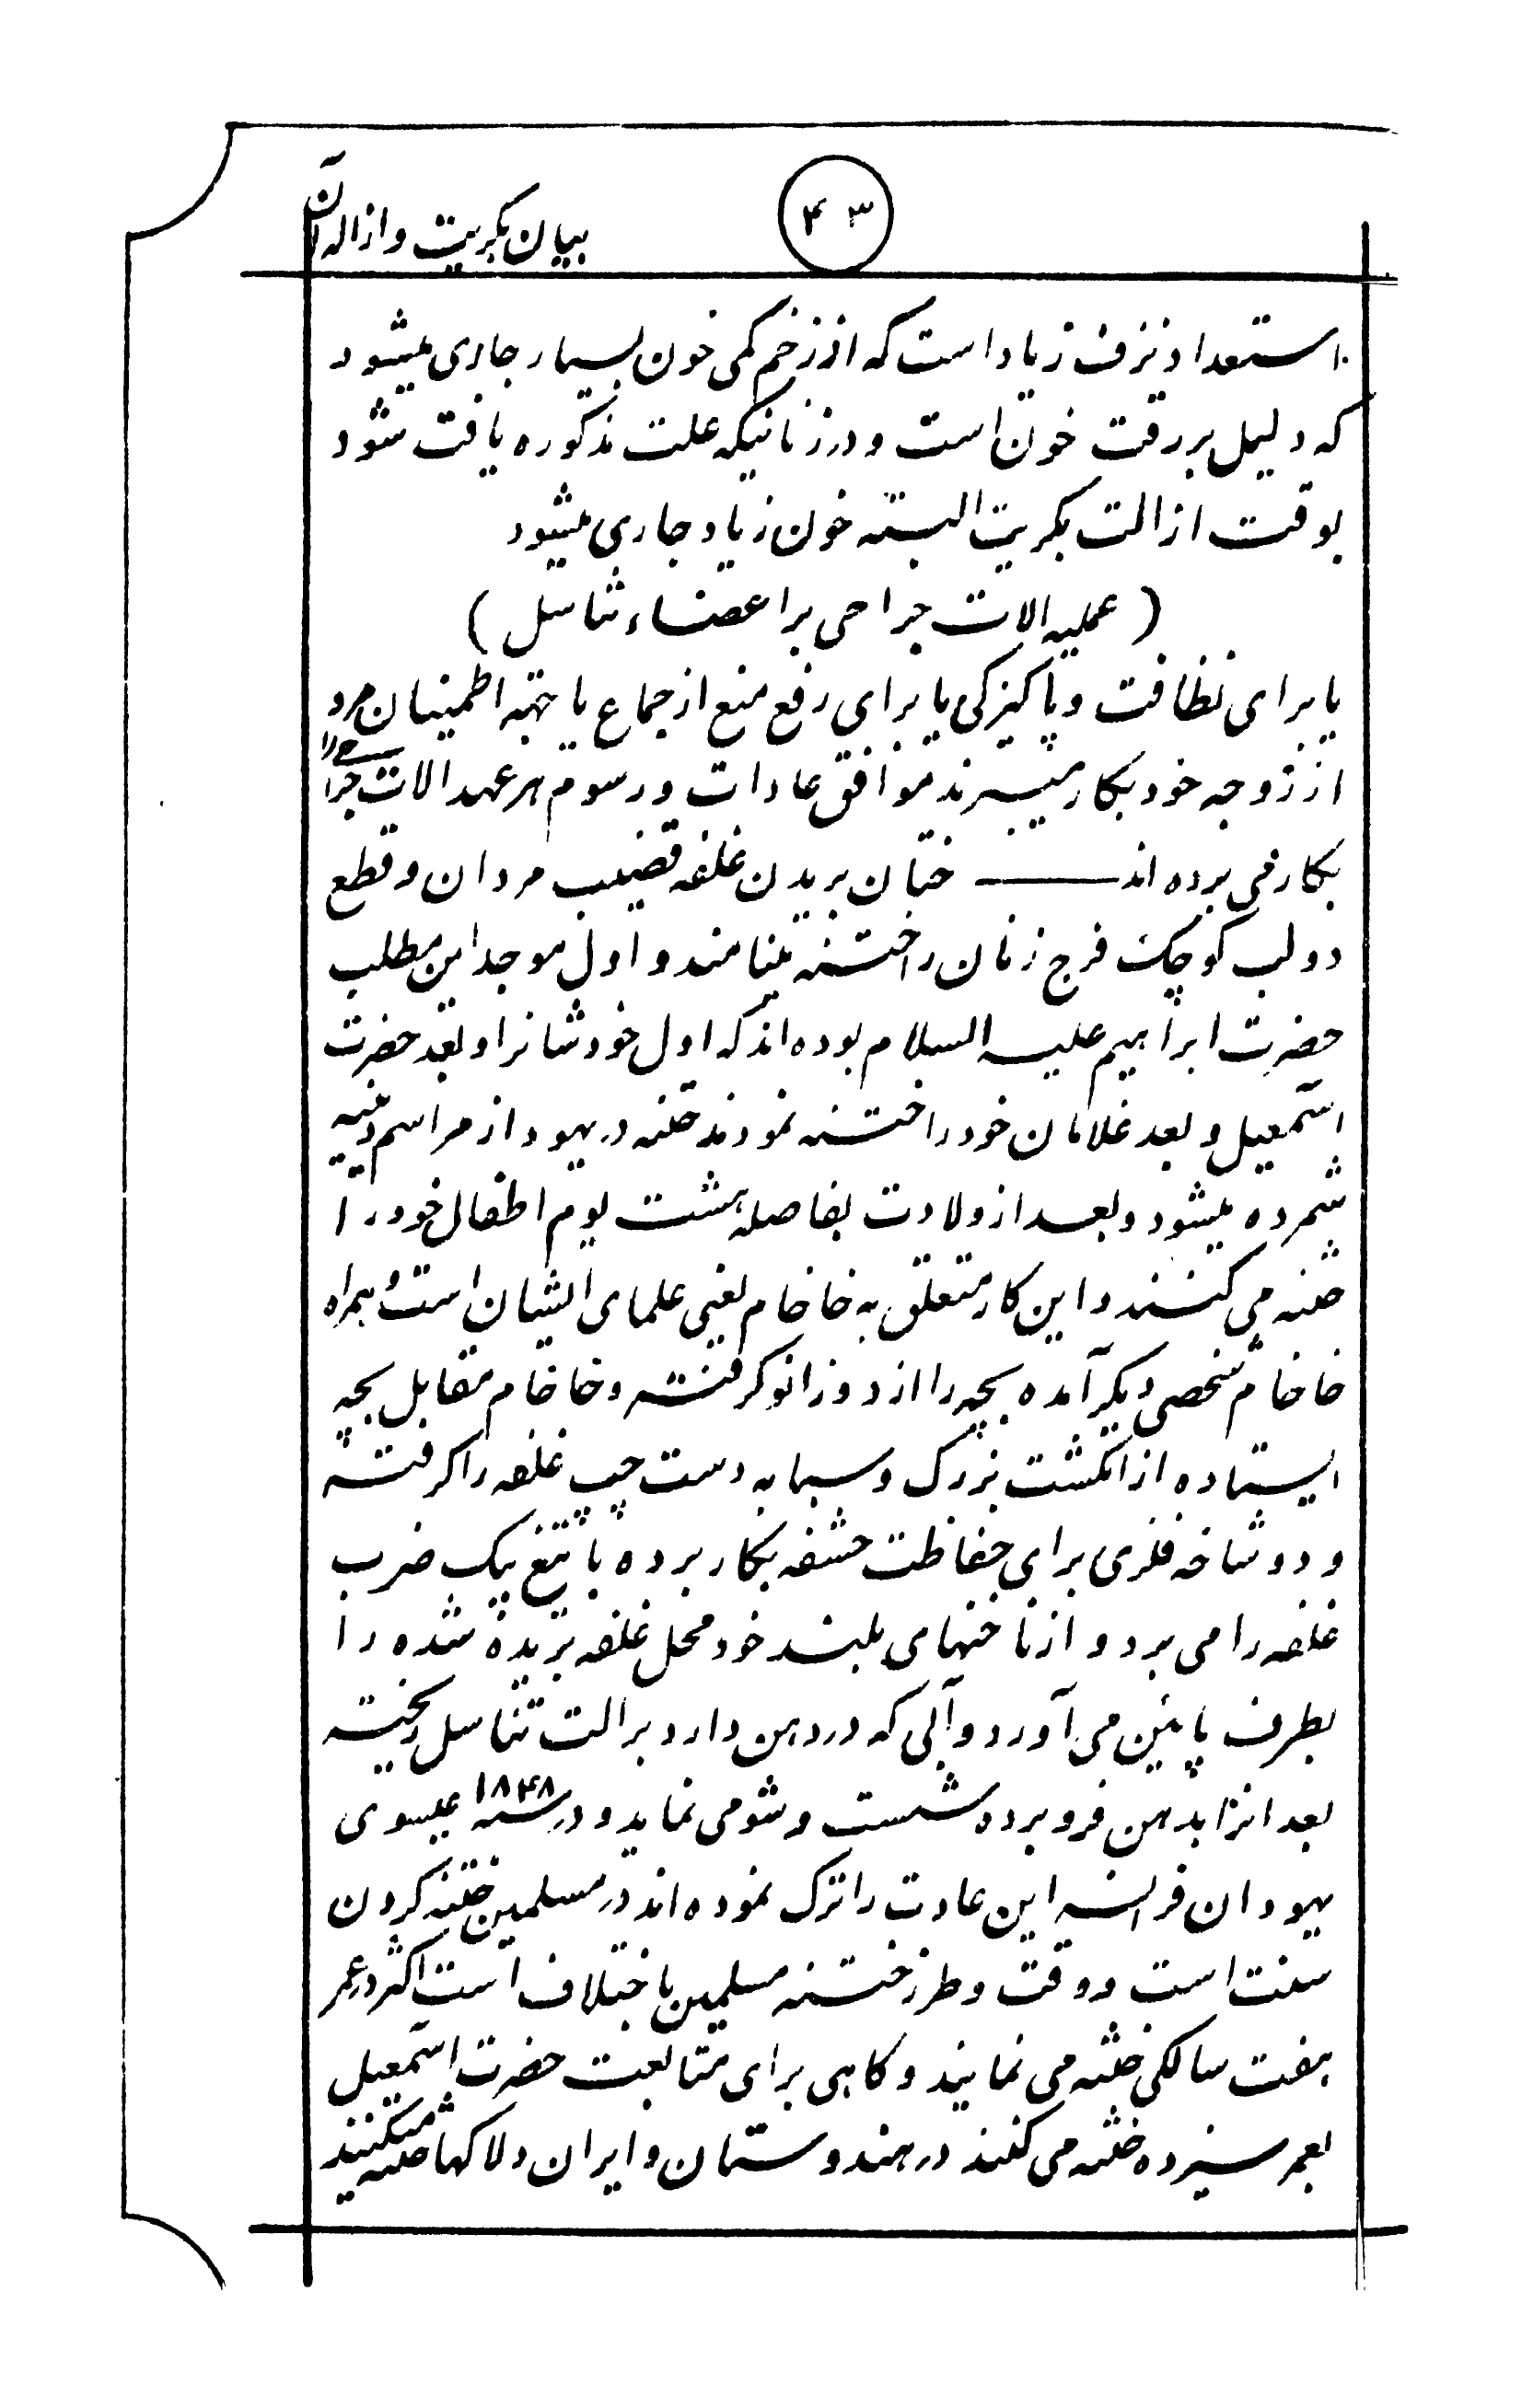 بیان بکریت و ازاله آن
۴۳
استعداد نزف زیاد است که از زخم کمی خون بسیار جاری میشود
که دلیل بر رقت خون است و در زنانیکه علت مذکوره یافت شود
بوقت ازالت بکریت البته خون زیاد جاری میشود
(عملیه الات جراحی بر اعضاء تناسل)
یا برای نظافت و پاکیزکی یا برای رفع منع از جماع یا جهته اطمینان مرد
از زوجه خود بکار میبرند موافق عادات و رسوم هر عهد الات جراحی را
بکار می برده اند ــــــ ختان بریدن غلفه قضیب مردان و قطع
دو لب کوچک فرج زنان را ختنه مینامند و اول موجد این مطلب
حضرت ابراهیم علیه السلام بوده اند که اول خودشانرا و بعد حضرت
اسمعیل و بعد غلامان خود را ختنه نمودند ختنه در یهود از مراسم دینیه
شمرده میشود و بعد از ولادت بفاصله هشت یوم اطفال خود را
ختنه می کنند و این کار متعلق به خاخام یعنی علمای ایشان است و همراه
خاخام شخصی دیگر آمده بچه را از دو زانو کرفته و خاخام مقابل بچه
ایستاده از انکشت بزرک و سبابه دست چپ غلفه را کرفته
و دو شاخه فلزی برای حفاظت حشفه بکار برده با تیغ بیک ضرب
غلفه را می برد و از ناخنهای بلند خود محل غلفه بریده شده را
بطرف پائین می آورد و آبی که در دهن دارد بر الت تناسل ریخته
بعد انرا بدهن فرو برده شست و شو می نماید و در سنه ۱۸۴۸ عیسوی
یهودان فرانسه این عادت را ترک نموده اند در مسلمین ختنه کردن
سنت است و وقت و طرز ختنه مسلمین باختلاف است اکثر در عمر
هفت سالکی ختنه می نمایند و کاهی برای متابعت حضرت اسمعیل
بعمر سیزده ختنه می کنند در هندوستان و ایران دلاکها ختنه میکنند